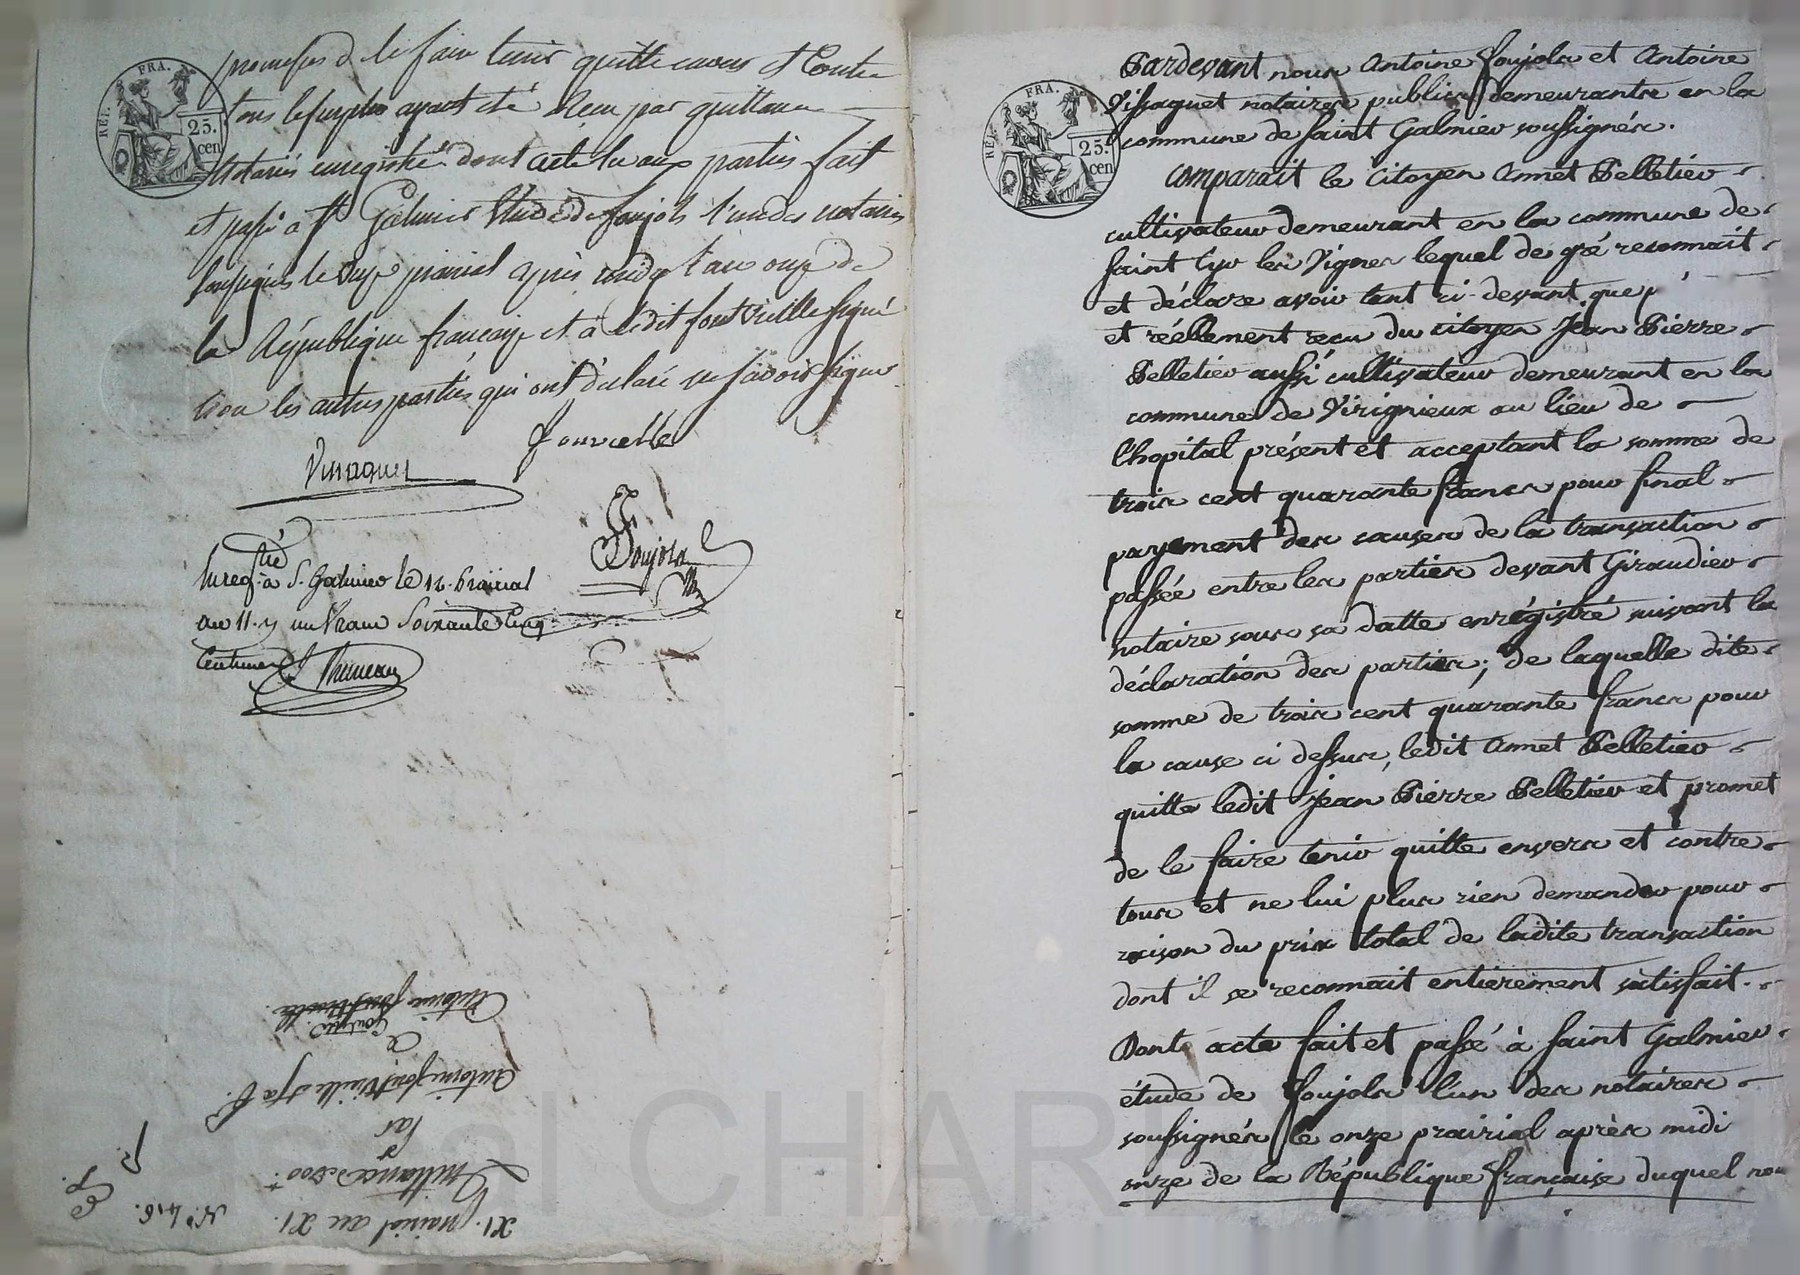 promesses de le faire tenir quitte envers et Contre
tous le surplus ayant eté Recu par quittance
Notariés enregistré dont acte lu aux parties fait
et passé à St Galmier Etude de Foujols l'un des notaires
soussignés le onze prairial après midy l'an onze de
la République française et à ledit fontvieille signé
non les autres parties qui ont déclaré ne savoir signer
Vissaguet
Foujols
Enregtré à St Galmier le 12. Prairial
an 11. un franc Soixante Cinq
Centimes
REP. FRA.
25.
cen
Antoine
à
Antoine fontvieille
Par
Quittance
XI. prairial an XI.
N° 416.
Pardevant nous Antoine Foujols et Antoine
Vissaguet notaires publics demeurants en la
commune de Saint Galmier soussignés.
REP. FRA.
25.
cen
Comparait le Citoyen Annet Pelletier
cultivateur demeurant en la commune de
Saint Cyr les Vignes lequel de gré reconnait
et déclare avoir tant ci-devant que
et réellement recu du citoyen Jean Pierre
Pelletier aussi cultivateur demeurant en la
commune de Virignieux au lieu de
l'hopital présent et acceptant la somme de
trois cent quarante francs pour final
payement des causes de la transaction
passée entre les parties devant Giraudier
notaire sous sa datte enrégistré suivant la
déclaration des parties; de laquelle dite
somme de trois cent quarante francs pour
la cause ci dessus, ledit Annet Pelletier
quitte ledit Jean Pierre Pelletier et promet
de le faire tenir quitte envers et contre
tous et ne lui plus rien demander pour
raison du prix total de ladite transaction
dont il se reconnait entièrement satisfait.
Dont acte fait et passé à Saint Galmier
étude de Foujols l'un des notaires
soussignés le onze prairial après midi
onze de la République française duquel